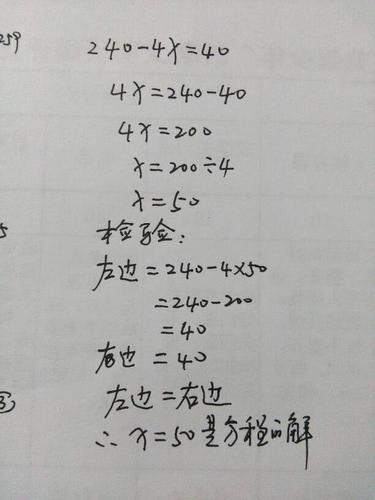 259
240-4x=40
4x=240-40
4x=200
x=200÷4
x=50
检验:
左边=240-4×50
=240-200
=40
右边=40
左边=右边
∴ x=50是方程的解